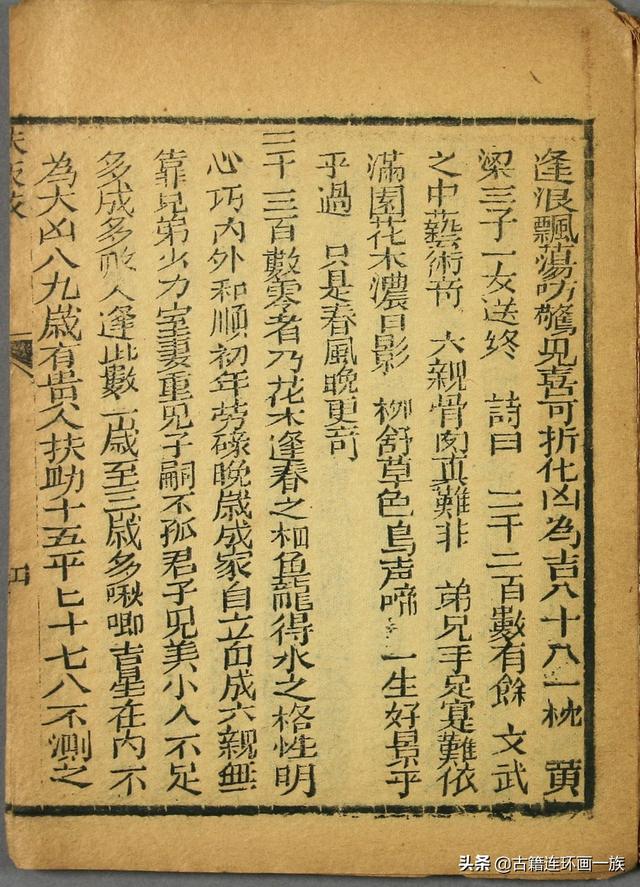 逢浪飄蕩叻驚見喜可折化凶為吉八十八一枕 黄
梁三子一女送終 詩曰 二千二百數有餘 文武
之中藝術奇 六親骨肉真難非 弟兄手足寔難依
滿園花木濃日影 柳舒草色鳥声啼 一生好景乎
乎過 只是春風晚更奇
三千三百數零者乃花木逢春之 魚龍得水之格性明
心巧內外和順初年劳碌晚歲成家自立 成六親無
靠兄弟少力室妻重見子嗣不孤君子見美小人不足
多成多敗人逢此數一歲至三歲多啾唧吉星在內不
為大凶八九歲有貴人扶助十五平七十七八不測之
头条 @古籍连环画一族